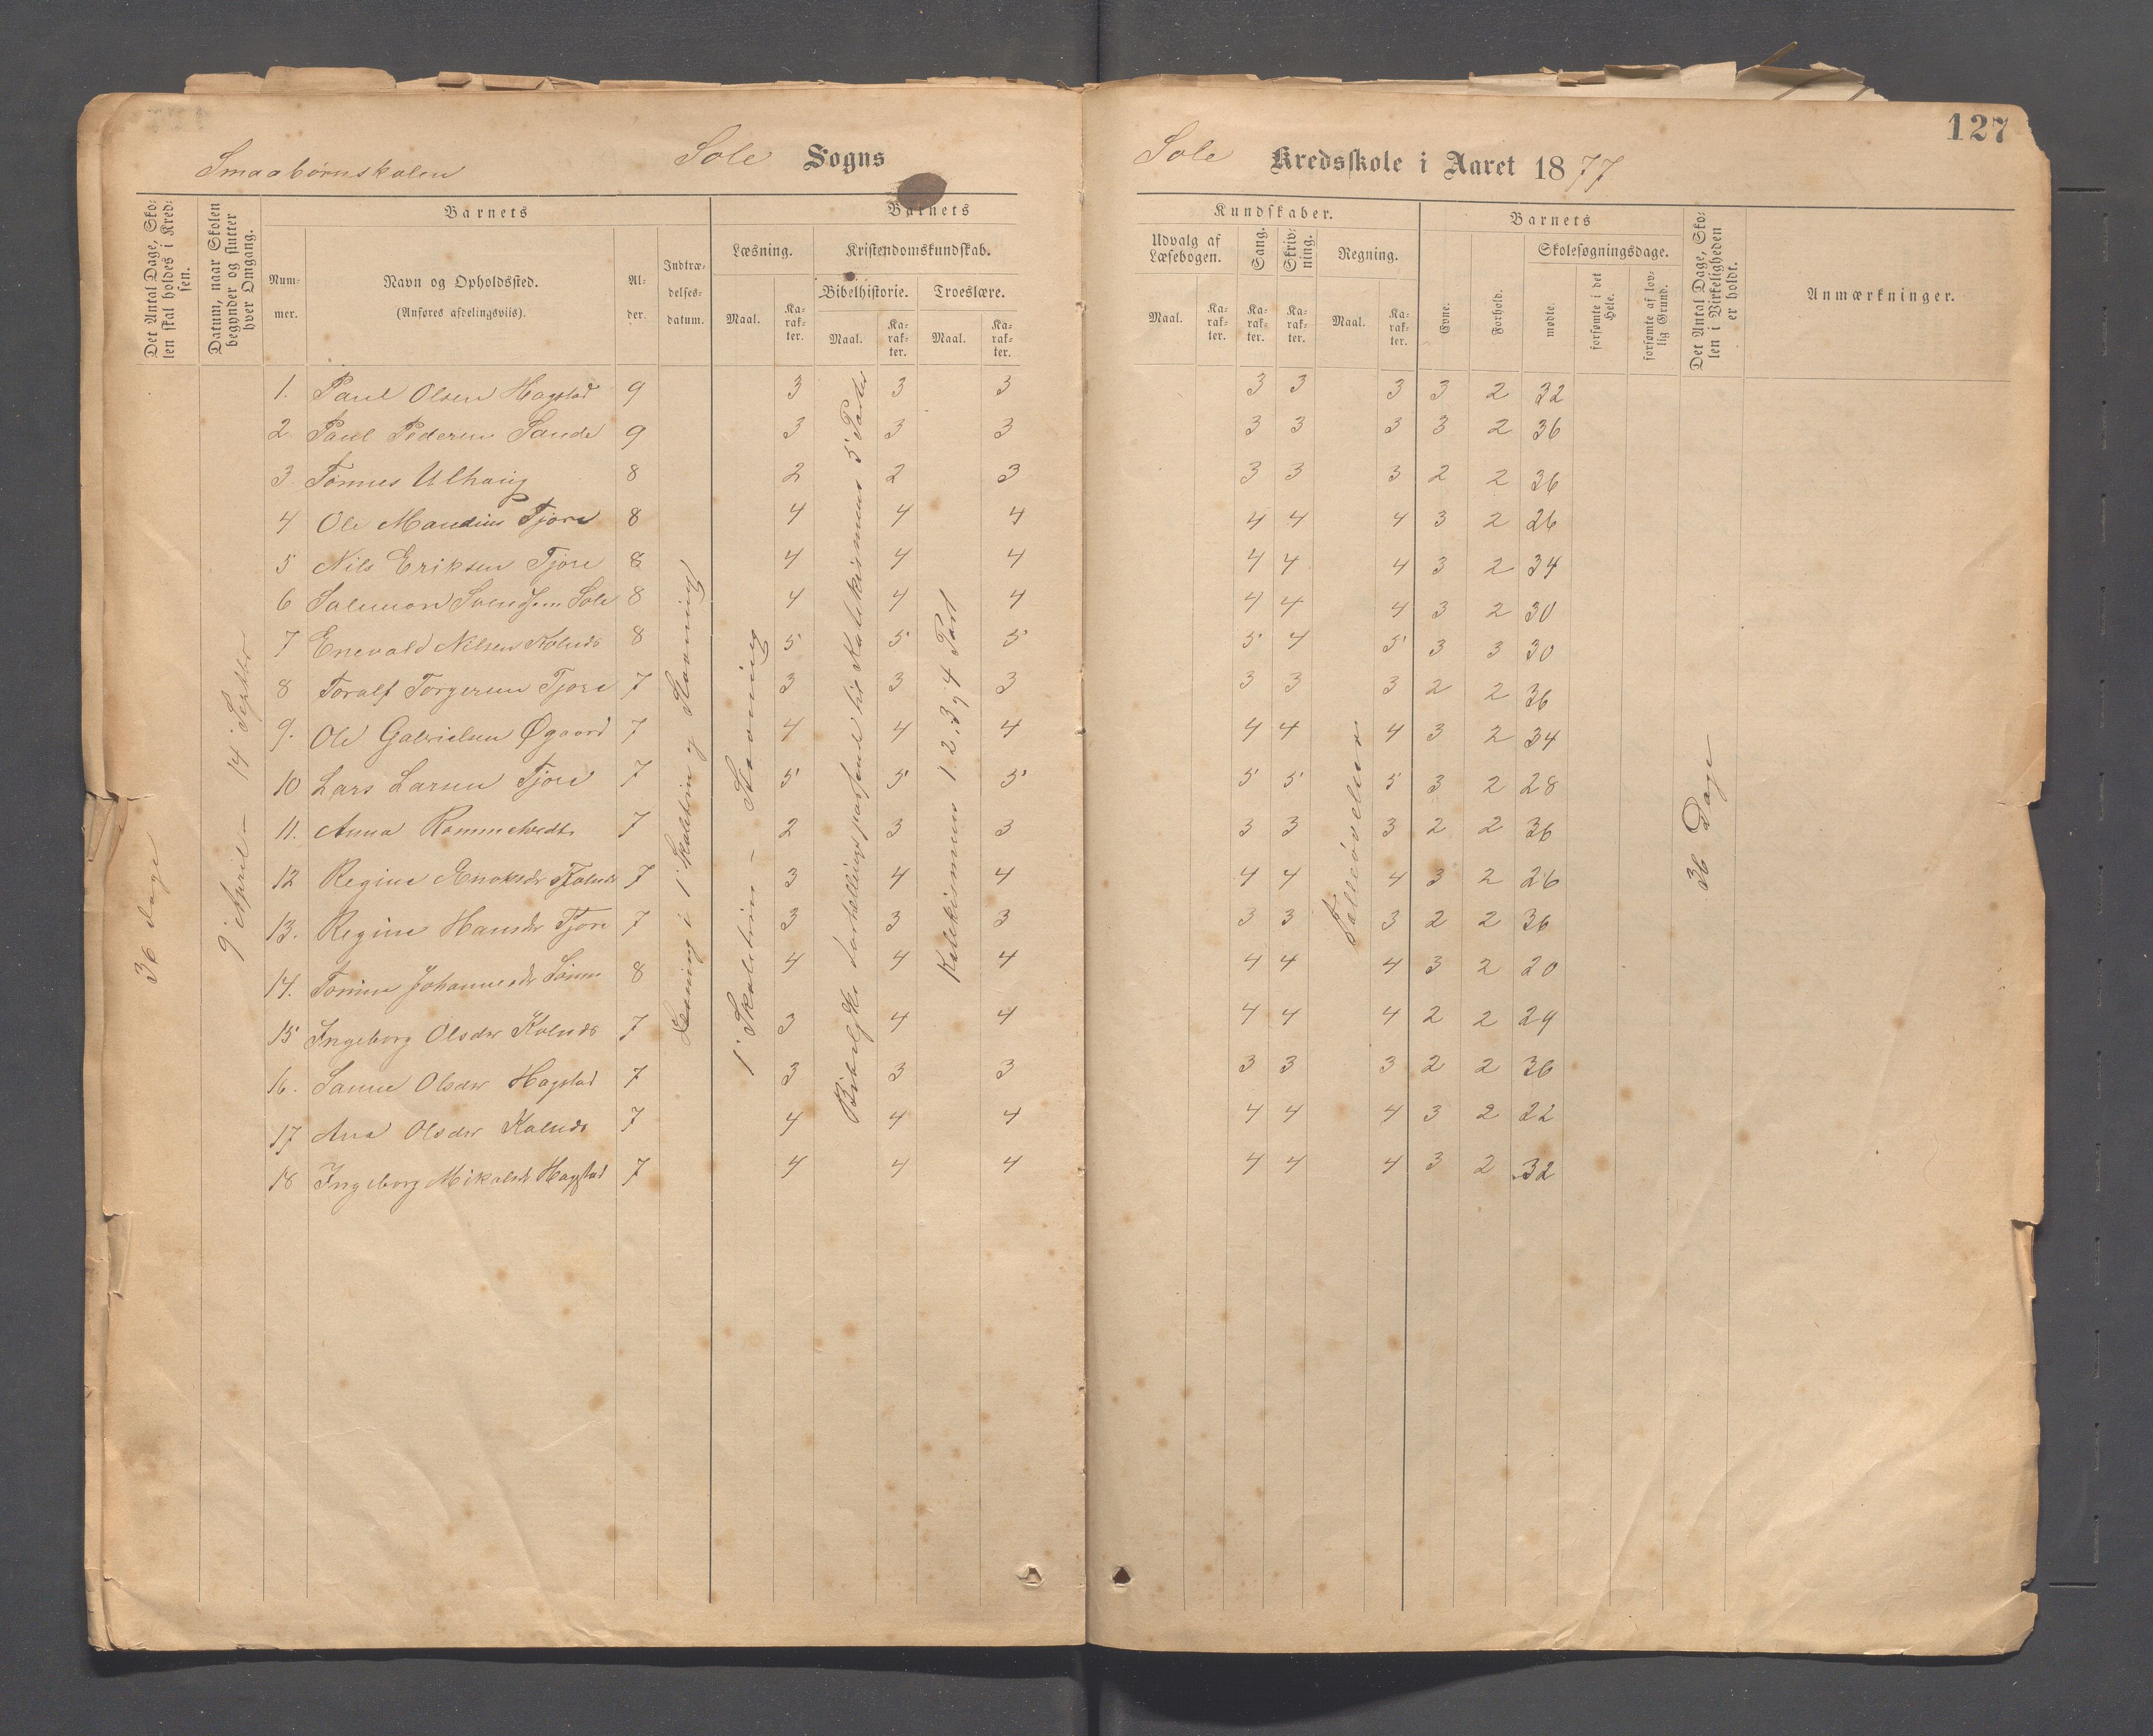 127
Smaabørnskolen
Sole Sogns
Sole Kredsskole i Aaret 1877
Det Antal Dage, Sko-
len skal holdes i Kred-
sen.
Datum, naar Skolen
begynder og slutter
hver Omgang.
Barnets
Num-
mer.
Navn og Opholdssted.
(Anføres afdelingsviis).
Al-
der.
Indtræ-
delses-
datum.
Barnets
Læsning.
Kristendomskundskab.
Bibelhistorie.
Troeslære.
Maal.
Ka-
rak-
ter.
Maal.
Ka-
rak-
ter.
Maal.
Ka-
rak-
ter.
Kundskaber.
Udvalg af
Læsebogen.
Sang.
Skriv-
ning.
Regning.
Maal.
Ka-
rak-
ter.
Ka-
rak-
ter.
Ka-
rak-
ter.
Maal.
Ka-
rak-
ter.
Barnets
Evne.
Forhold.
Skolesøgningsdage.
mødte.
forsømte i det
Hele.
forsømte af lov-
lig Grund.
Det Antal Dage, Sko-
len i Virkeligheden
er holdt.
Anmærkninger.
36 Dage
9 April - 14 Septbr
1. Paul Olsen Hagstad 9 3 3 3 3 3 3 3 2 32
2. Paul Pedersen Sande 9 3 3 3 3 3 3 3 2 36
3. Tønnes Ulhaug 8 2 2 3 3 3 3 2 2 36
4 Ole Maudius Tjore 8 4 4 4 4 4 4 3 2 26
5 Nils Eriksen Tjore 8 4 4 4 4 4 4 3 2 34
6 Salemon Svendsen Sole 8 4 4 4 4 4 4 3 2 30
7 Enevald Nilsen 8 5 5 5 5 4 5 3 3 30
8 Toralf Torgersen Tjore 7 3 3 3 3 3 3 2 2 36
9. Ole Gabrielsen Øgaard 7 4 4 4 4 4 4 3 2 34
10 Lars Larsen Tjore 7 5 5 5 5 5 5 3 2 28
11. Anna Rommetvedt 7 2 3 3 3 3 3 2 2 36
12 Regine 7 3 4 4 4 4 4 3 2 26
13. Regine Hansdr Tjore 7 3 3 3 3 3 3 2 2 36
14. Johannesdr 8 4 4 4 4 4 4 3 2 20
15 Ingeborg Olsdr 7 3 4 4 4 4 4 2 2 29
16. Sanne Olsdr Hagstad 7 3 3 3 3 3 3 2 2 36
17 Ana Olsdr 7 4 4 4 4 4 4 3 2 22
18 Ingeborg Mikalsdr Hagstad 7 4 4 4 4 4 4 3 2 32
Læsning i 1 Skoletrin og Stavning
1 Skoletrin - Stavning
Bibelske Fortællinger passende til Katekismens 5 Parter
Katekismen 1. 2. 3 og 4 Part
Talleøvelser
36 Dage